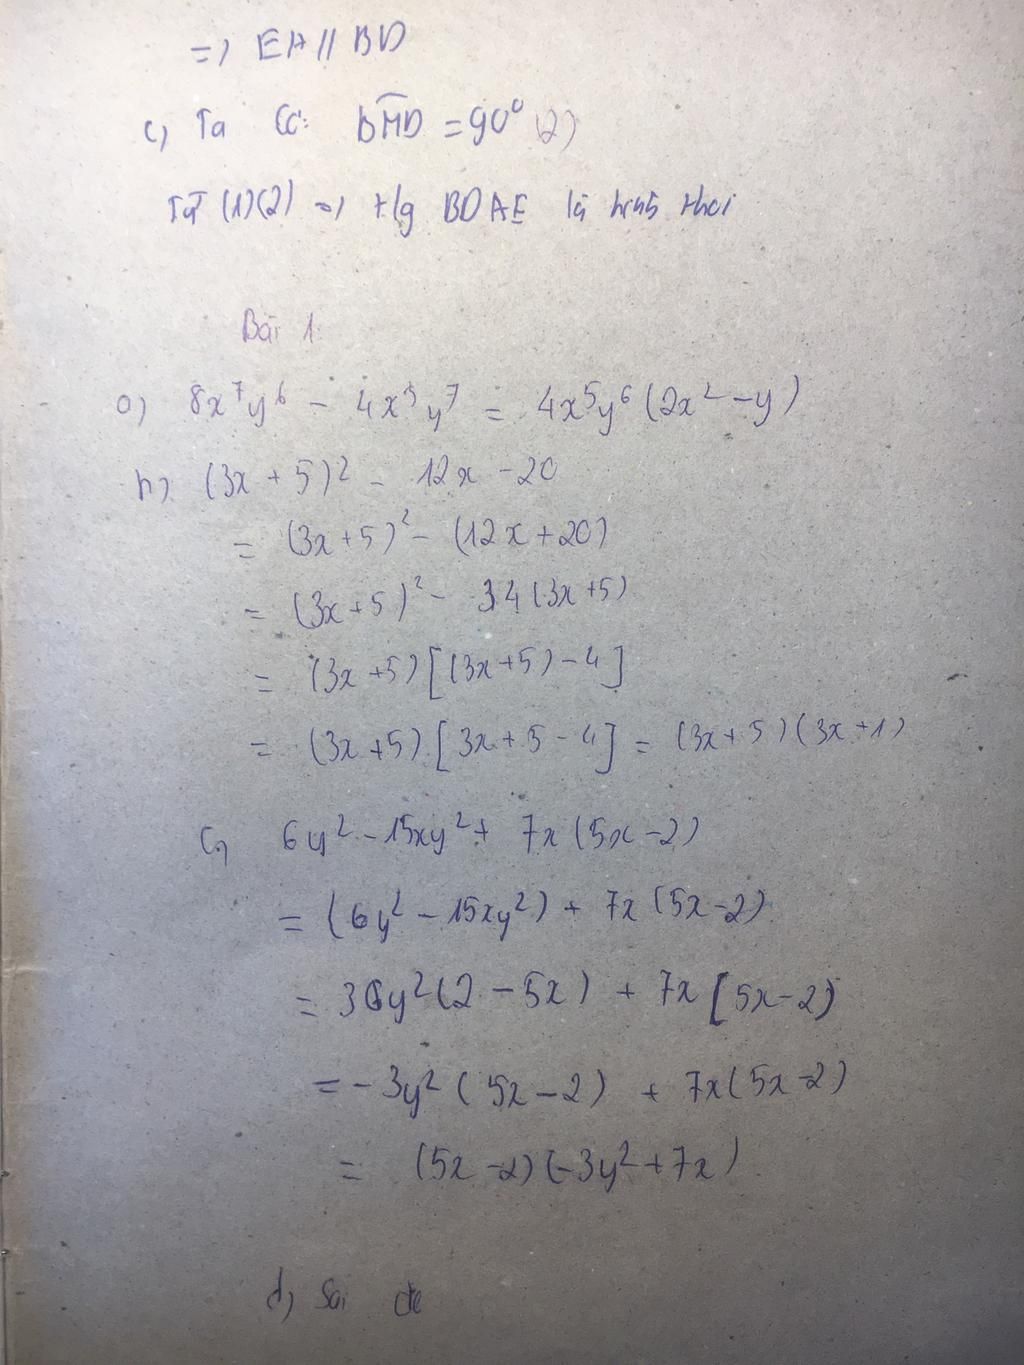 =) EA // BD
c) Ta có: BMD = 90° (2)
Từ (1)(2) =) tg BDAE là hình thoi
Bài 1:
a) 8x⁷y⁶ - 4x⁵y⁷ = 4x⁵y⁶ (2x² - y)
b) (3x + 5)² - 12x - 20
= (3x + 5)² - (12x + 20)
= (3x + 5)² - 4 (3x + 5)
= (3x + 5) [(3x + 5) - 4]
= (3x + 5) [3x + 5 - 4] = (3x + 5) (3x + 1)
c) 6y² - 15xy² + 7x (5x - 2)
= (6y² - 15xy²) + 7x (5x - 2)
= 3y² (2 - 5x) + 7x [5x - 2)
= - 3y² (5x - 2) + 7x (5x - 2)
= (5x - 2) (-3y² + 7x)
d) Sai đề